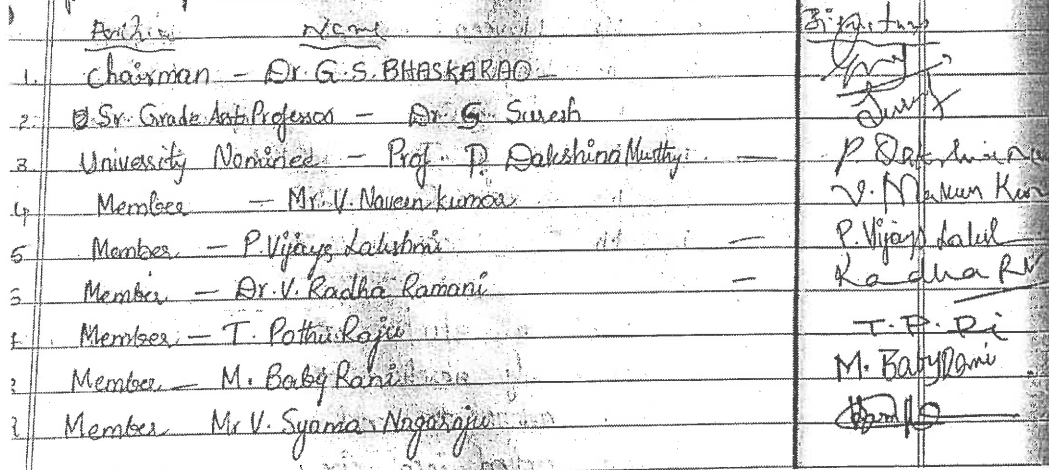 Position Name Signature
1. Chairman - Dr. G.S. BHASKARAO
2. Sr. Grade Asst. Professor - Dr G Suresh Suresh
3 University Nominee - Prof. P. Dakshina Murthy - P. Dakshina
4 Member - Mr. V. Naveen kumar V. Naveen Kum
5 Member - P. Vijaya Lakshmi - P. Vijaya Laksh
Member - Dr. V. Radha Ramani - Radha
Member - T. Pothu Raju T. P. Ri
Member - M. Baby Rani M. Baby Rani
Member Mr V. Syama Nagaraju